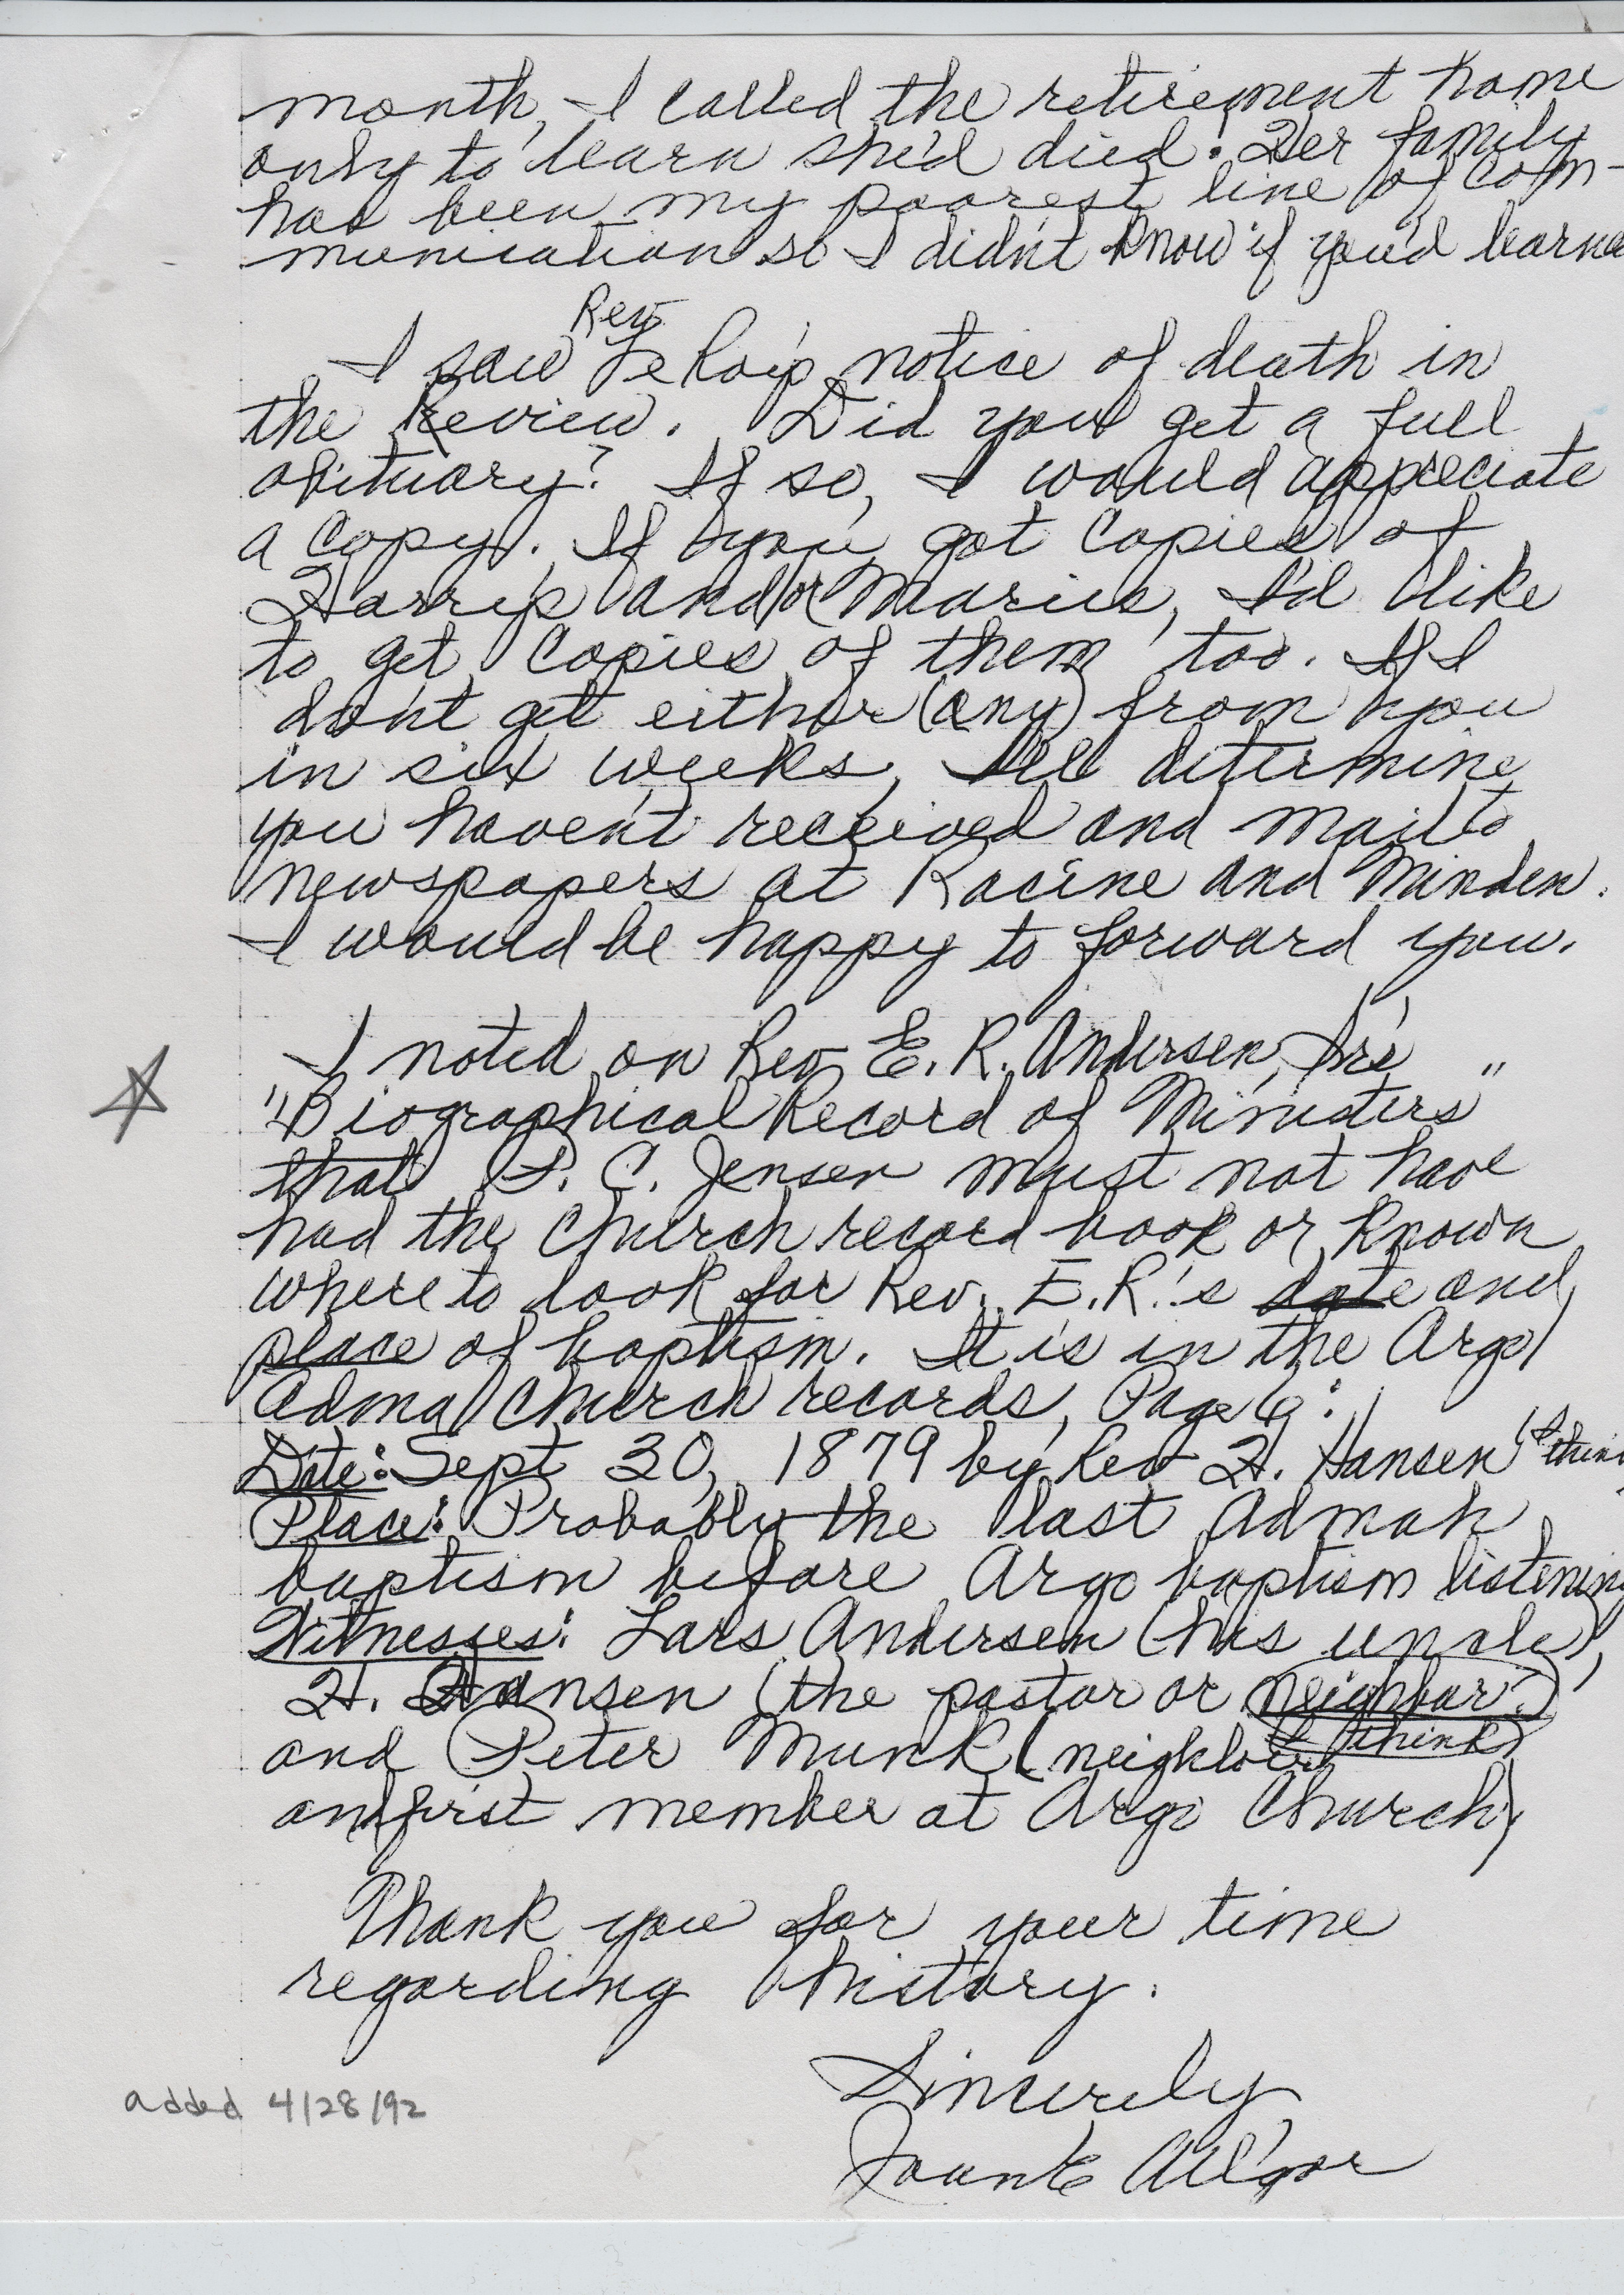 month, I called the retirement home
only to learn she'd died. Her family
has been my poorest line of com-
munication so I didn't know if you'd learne
Rev.
I saw LeRoy's notice of death in
the Review. Did you get a full
obituary? If so, I would appreciate
a copy. If you got copies of
Harry's and/or Marius, I'd like
to get copies of them too. If I
don't get either (any) from you
in six weeks, I'll determine
you haven't received and mail to
newspapers at Racine and Minden.
I would be happy to forward you.
I noted on Rev E. R. Andersen, Sr's "
"Biographical Record of Ministers"
that P. C. Jensen must not have
had the church record book or known
where to look for Rev. E.R.'s date and
place of baptism. It is in the Argo/
Admah church records, Page 6:
Date: Sept 30, 1879 by Rev H. Hansen (I thin
Place: Probably the last Admah
baptism before Argo baptism listening
Witnesses: Lars Andersen (his uncle),
H. Hansen (the pastor or neighbor?)
I think
and Peter Munk (neighbor
and first member at Argo Church)
Thank you for your time
regarding history.
Sincerely,
added 4/28/92
Joan E